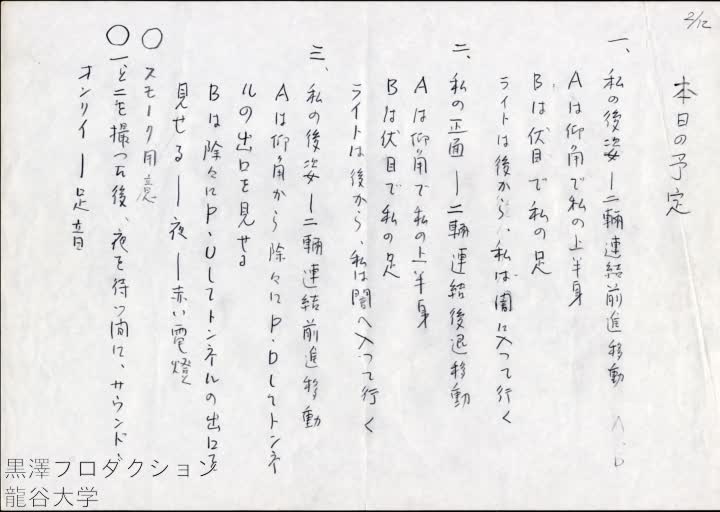 2/12
本日の予定
一、私の後姿―二輛連結前進移動 A、D
Aは仰角で私の上半身
Bは伏目で私の足
ライトは後から、私は闇に入って行く
二、私の正面―二輛連結後退移動
Aは仰角で私の上半身
Bは伏目で私の足
ライトは後から、私は闇へ入って行く
三、私の後姿―二輛連結前進移動
Aは仰角から除々にP・Dしてトンネ
ルの出口を見せる
Bは除々にP・Uしてトンネルの出口を
見せる―夜―赤い電燈
○スモーク用意
○一、と二を撮った後、夜を待つ間に、サウンド、
オンリイ―足音
黒澤プロダクション
龍谷大学